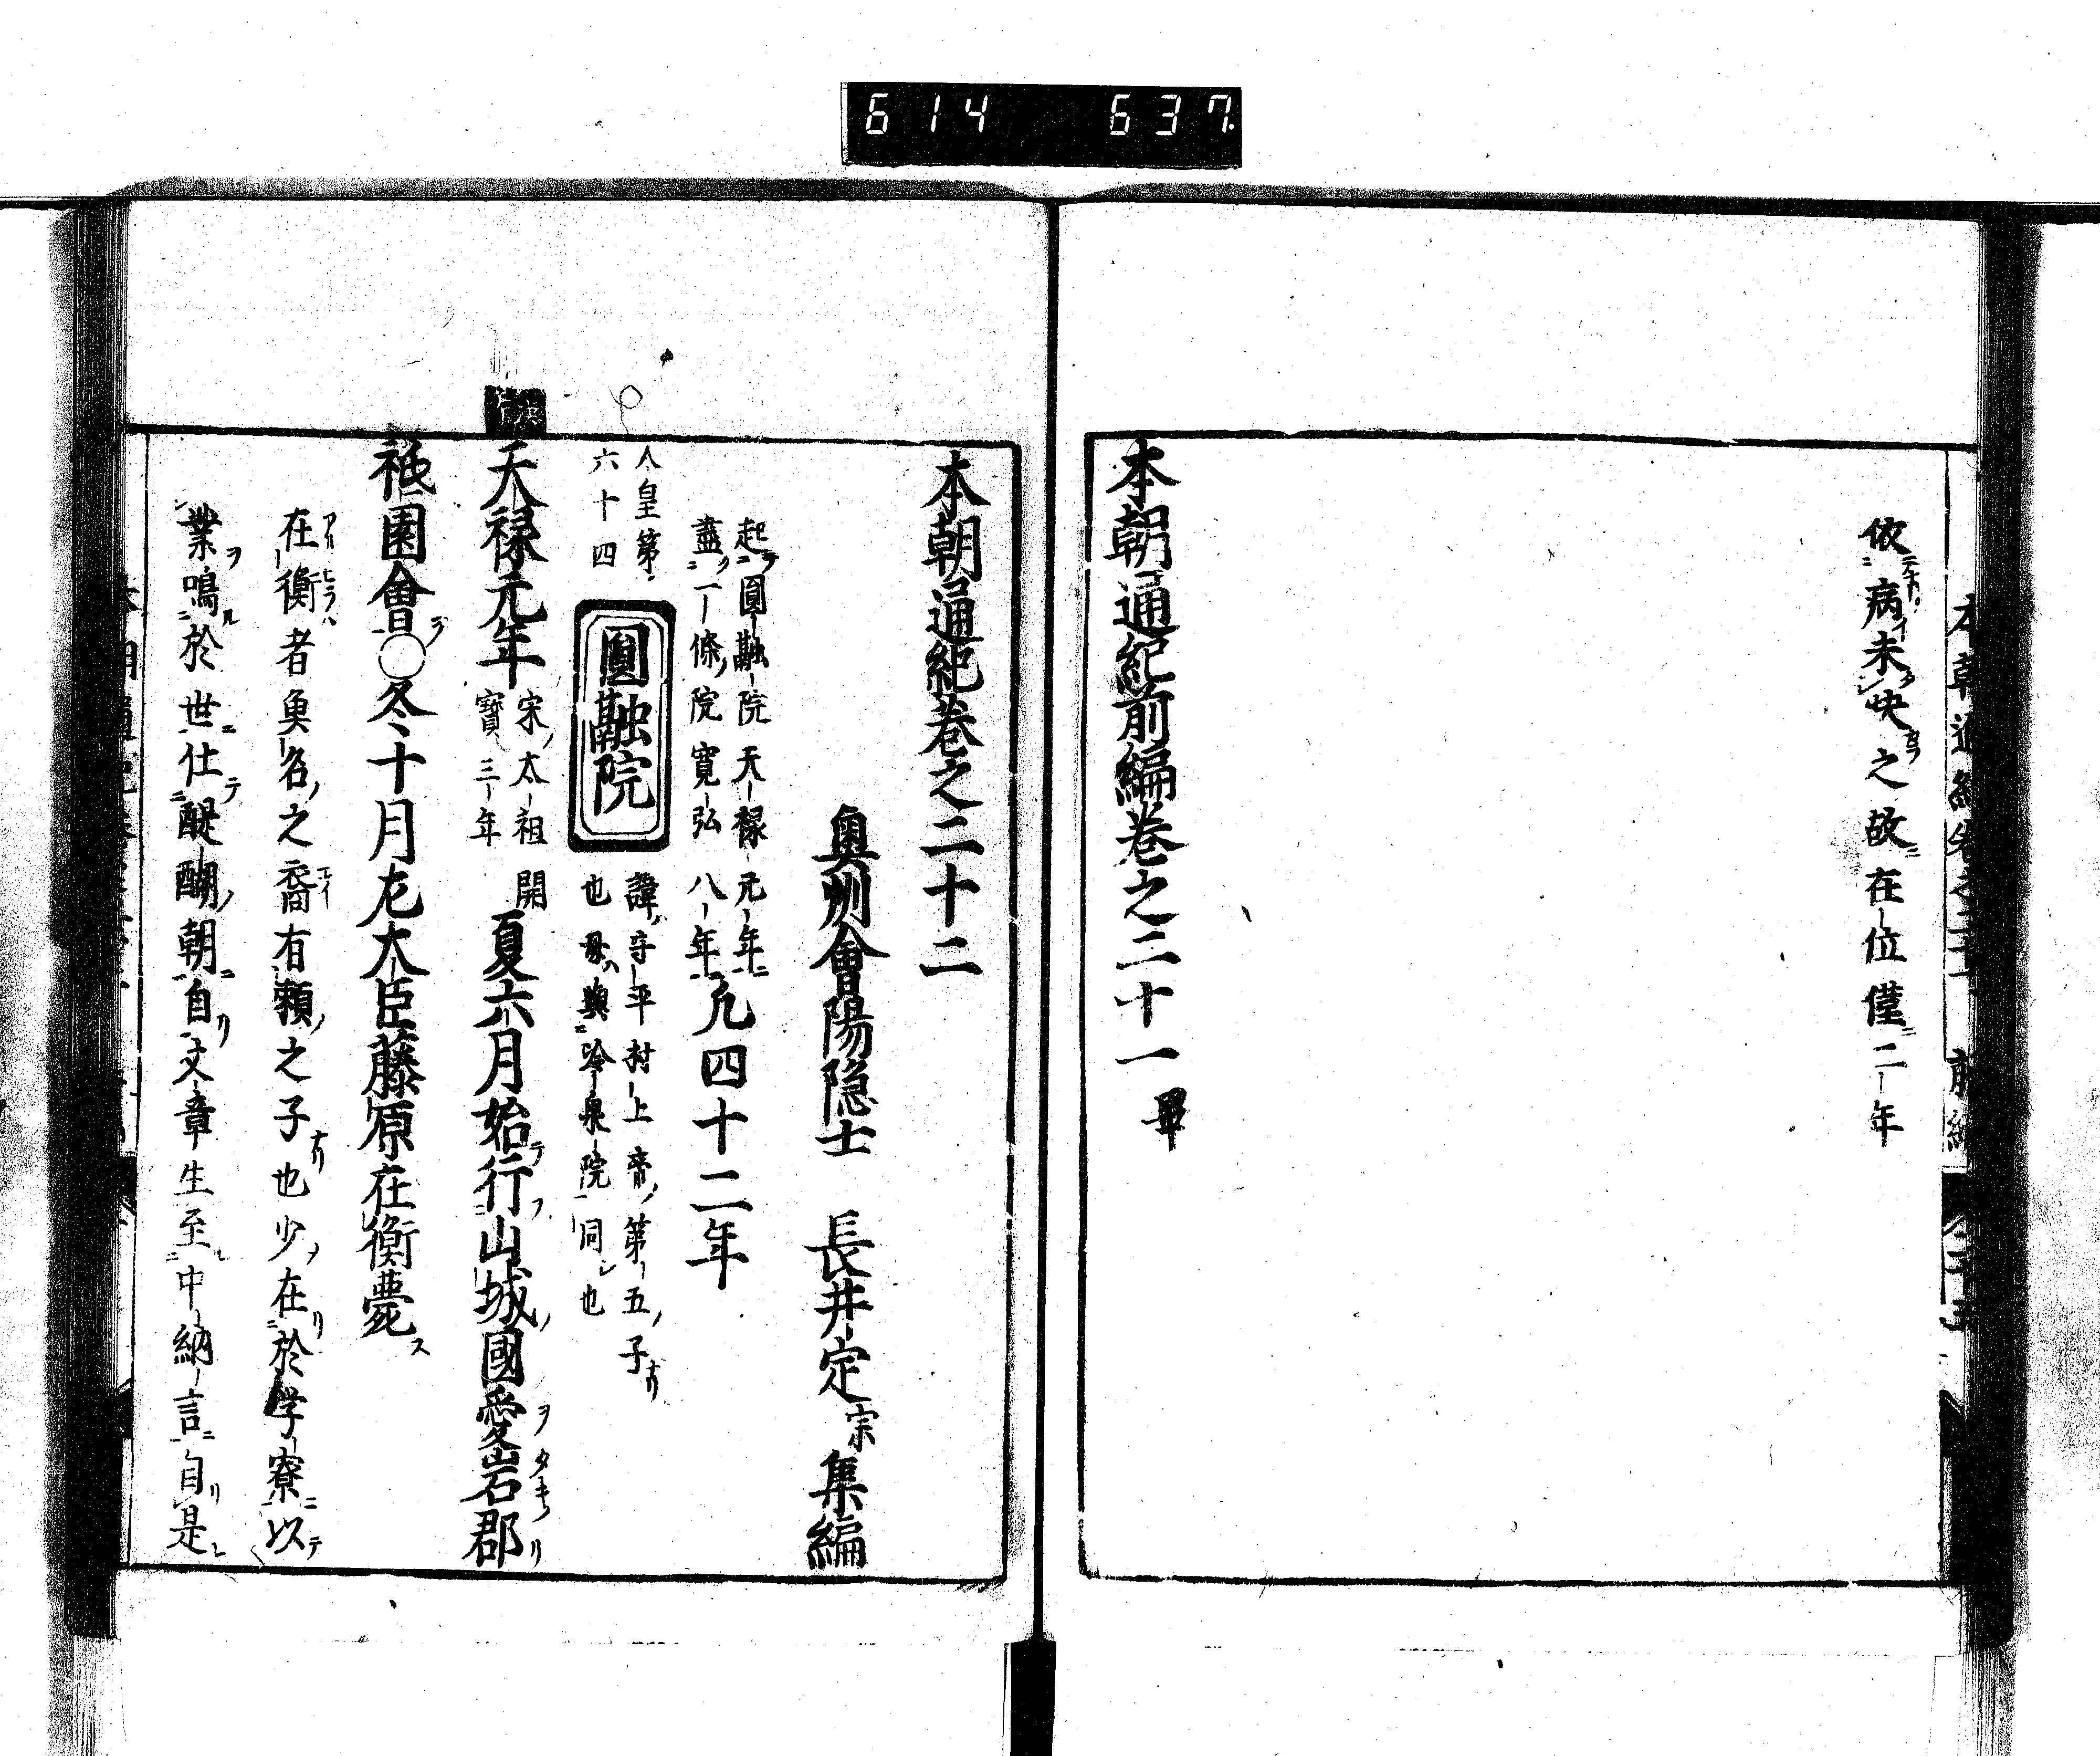 614 637
依病未快之故在位僅二年
本朝通紀前編巻之二十一畢
本朝通紀巻之二十二
奥州會陽隠士 長井定宗集編
起圓融院天禄元年
盡一條院寛弘八年凡四十二年
人皇第
六十四
圓融院
諱守平村上帝第五子
也母與冷泉院同也
天禄元年
宋太祖開
寶三年
夏六月始行山城國愛宕郡
祇園會〇冬十月左大臣藤原在衡薨
在衡者魚名之裔有頼之子也少在於学寮以
業鳴於世仕醍醐朝自文章生至中納言自是